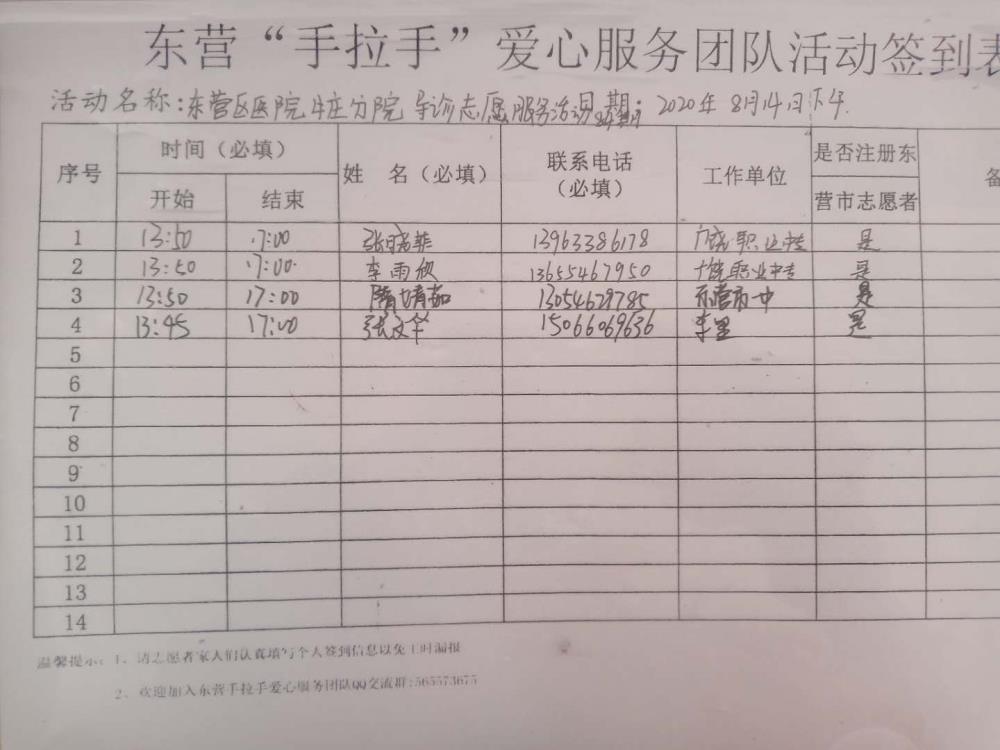 东营“手拉手”爱心服务团队活动签到表
活动名称:东营区医院牛庄分院导诊志愿服务活动 日期: 2020年8月14日下午.
序号 时间（必填） 姓 名（必填） 联系电话（必填） 工作单位 是否注册东营市志愿者 备
开始 结束
1 13:50 17:00 张晓菲 13963386178 职业中专 是
2 13:50 17:00 李雨欣 13655467950 职业中专 是
3 13:50 17:00 隋婧茹 13054679785 东营市一中 是
4 13:45 17:00 张文华 15066069636 是
5
6
7
8
9
10
11
12
13
14
温馨提示: 1、请志愿者家人们认真填写个人签到信息以免工时漏报
2、欢迎加入东营手拉手爱心服务团队QQ交流群:565573675